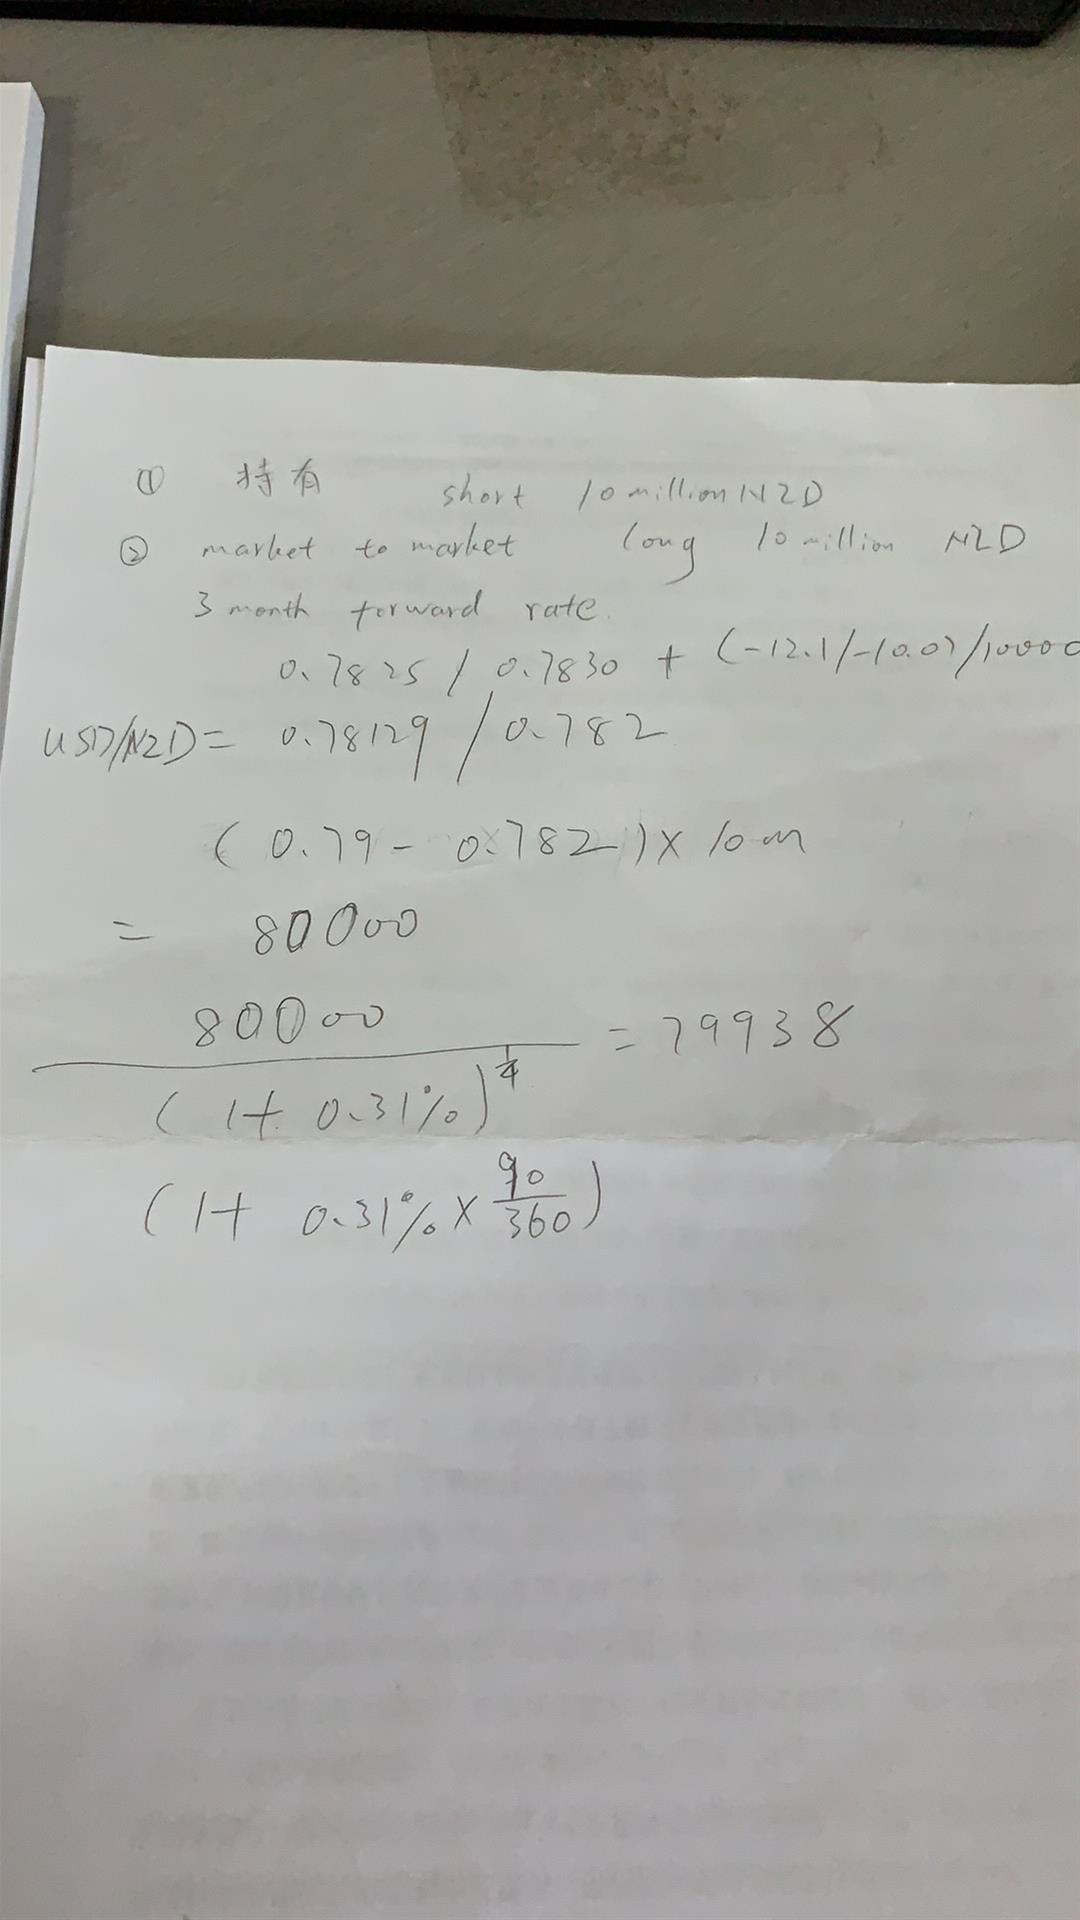 ① 持有 short 10 million NZD
② market to market long 10 million NZD
3 month forward rate.
0.7825 / 0.7830 + (-12.1/-10.0)/10000
USD/NZD = 0.78129 / 0.782
( 0.79 - 0.782 ) × 10m
= 80000
80000
= 79938
( 1+ 0.31% )^1/4
( 1+ 0.31% × 90/360 )